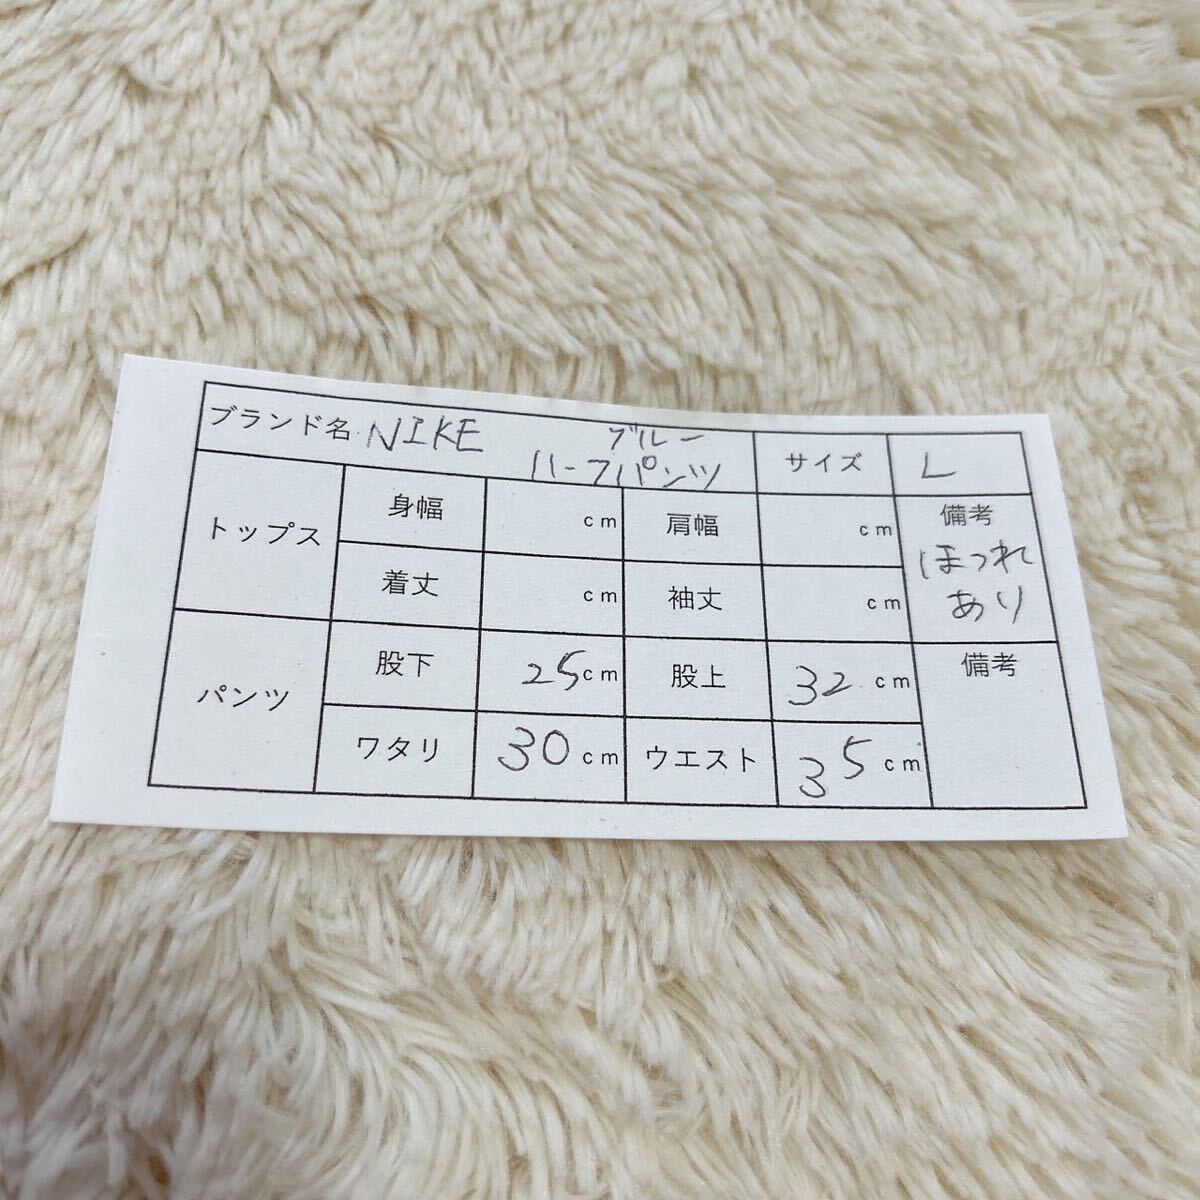 ブランド名 NIKE ブルー
ハーフパンツ サイズ L
トップス 身幅 cm 肩幅 cm 備考
着丈 cm 袖丈 cm ほつれ
あり
パンツ 股下 25cm 股上 32 cm 備考
ワタリ 30 cm ウエスト 35 cm